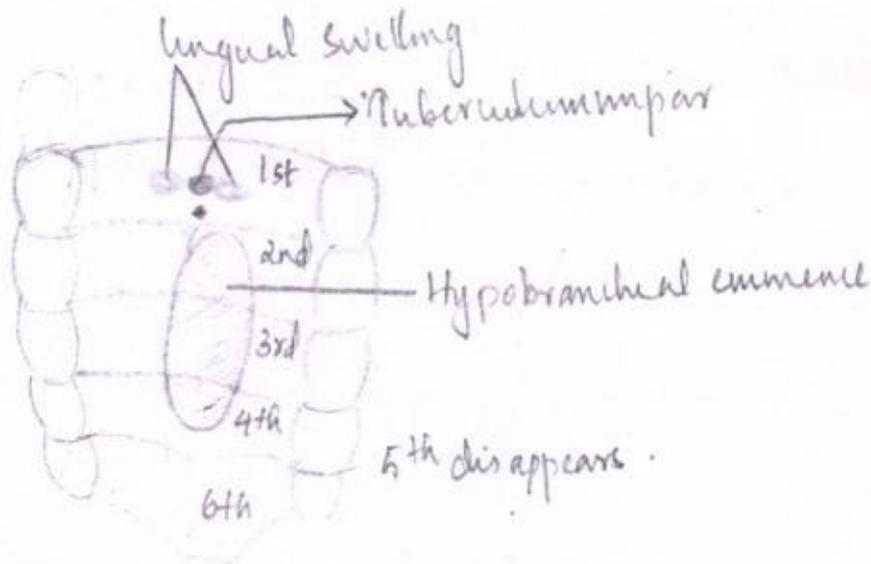 lingual swelling
Tuberculumimpar
1st
2nd
Hypobrancheal eminence
3rd
4th
5th disappears.
6th